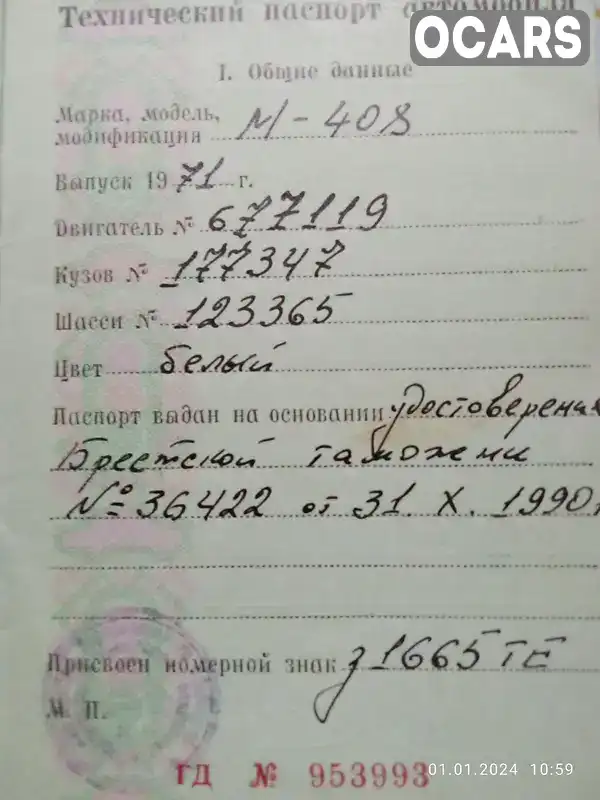 Технический паспорт автомобиля
OCARS
I. Общие данные
Марка, модель,
модификация М-408
Выпуск 1971 г.
Двигатель № 677119
Кузов № 177347
Шасси № 123365
Цвет белый
Паспорт выдан на основании удостоверения
Брестской таможни
№ 36422 от 31. X. 1990г
Присвоен номерной знак з1665ТЕ
М. П.
ГД № 953993
01.01.2024 10:59